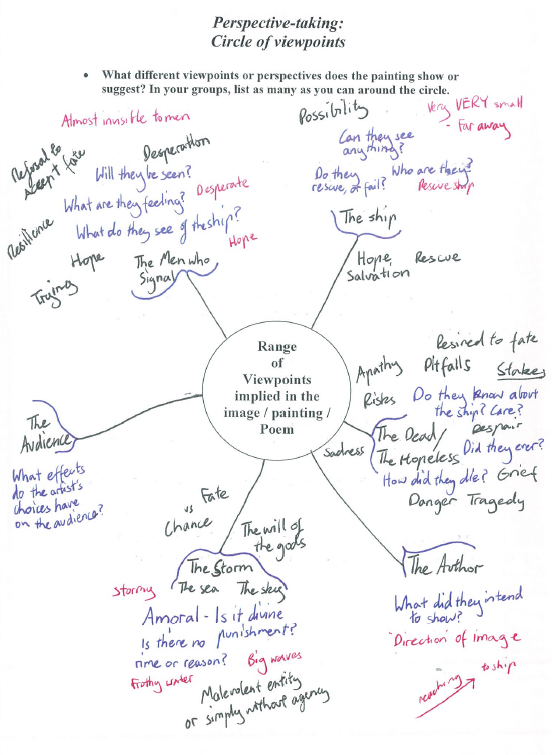 Perspective-taking:
Circle of viewpoints
• What different viewpoints or perspectives does the painting show or
suggest? In your groups, list as many as you can around the circle.
Almost invisible to men
Refusal to
accept fate
Desperation
Will they be seen?
Desperate
What are they feeling?
What do they see of the ship?
Hope
Resilience
Hope
Trying
The Men who
Signal
Possibility
Very VERY small
- Far away
Can they see
anything?
Do they
rescue, or fail?
Who are they?
Rescue ship
The ship
Hope,
Salvation
Rescue
Range
of
Viewpoints
implied in the
image / painting /
Poem
Apathy
Risks
Resired to fate
Pitfalls
Stakes
Do they know about
the ship? Care?
Despair
The Dead/
The Hopeless
Sadness
Did they ever?
How did they die?
Grief
Danger Tragedy
The
Audience
What effects
do the artist's
choices have
on the audience?
Fate
vs
Chance
The will of
the gods
The Storm
The sea
The sky
Stormy
Amoral - Is it divine
punishment?
Is there no
rime or reason?
Big waves
Frothy water
Malevolent entity
or simply without agency
The Author
What did they intend
to show?
'Direction' of image
reaching
to ship